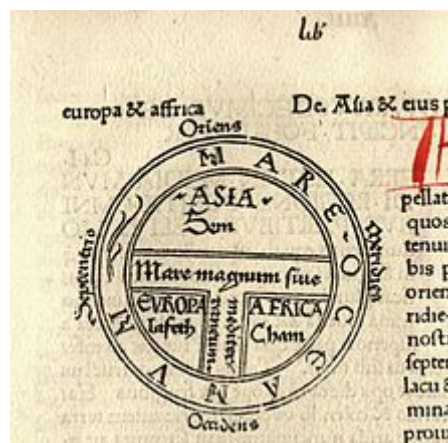 lib'
europa & affrica
De. Asia & eius p
Oriens
MARE OCCEANVM
ASIA
Sem
Meridies
Septentrio
Mare magnum siue
mediterraneum
EVROPA
Iafeth
AFRICA
Cham
Occidens
pellat
quos
tenui
bis p
orien
ridie
nost
septen
lacu &
mina
proui